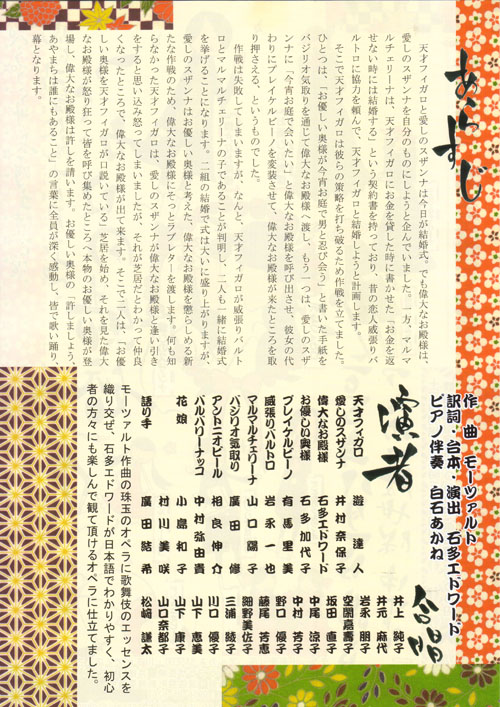 あらすじ
天才フィガロと愛しのスザンナは今日が結婚式。でも偉大なお殿様は、
愛しのスザンナを自分のものにしようと企んでいました。一方、マルマ
ルチェリーナは、天才フィガロにお金を貸した時に書かせた「お金を返
せない時には結婚する」という契約書を持っており、昔の恋人威張りバ
ルトロに協力を頼んで、天才フィガロと結婚しようと計画します。
そこで天才フィガロは彼らの策略を打ち破るため作戦を立てました。
ひとつは、「お優しい奥様が今宵お庭で男と忍び会う」と書いた手紙を
バジリオ気取りを通じて偉大なお殿様へ渡し、もう一つは、愛しのスザ
ンナに「今宵お庭で会いたい」と偉大なお殿様を呼び出させ、彼女の代
わりにブレイケルビーノを変装させて、偉大なお殿様が来たところを取
り押さえる、というものでした。
作戦は失敗してしまいますが、なんと、天才フィガロが威張りバルト
ロとマルマルチェリーナの子であることが判明し、二人も一緒に結婚式
を挙げることになります。二組の結婚で式は大いに盛り上がりますが、
愛しのスザンナはお優しい奥様と考えた、偉大なお殿様を懲らしめる新
たな作戦のため、偉大なお殿様にそっとラブレターを渡します。何も知
らなかった天才フィガロは、愛しのスザンナが偉大なお殿様と逢い引き
をすると思い込み怒ってしまいましたが、それが芝居だとわかって仲良
くなったところで、偉大なお殿様が出て来ます。そこで二人は、「お優
しい奥様を天才フィガロが口説いている」芝居を始め、それを見た偉大
なお殿様が怒り狂って皆を呼び集めたところへ本物のお優しい奥様が登
場し、偉大なお殿様は許しを請います。お優しい奥様の「許しましょう、
あやまちは誰にもあること」の言葉に全員が深く感動し、皆で歌い踊り、
幕となります。
作　曲　モーツァルト
訳詞・台本・演出　石多エドワード
ピアノ伴奏　白石あかね
演者
天才フィガロ　遊　達人
愛しのスザンナ　井村奈保子
偉大なお殿様　石多エドワード
お優しい奥様　石多加代子
ブレイケルビーノ　有馬里美
威張りバルトロ　岩永一也
マルマルチェリーナ　山口陽子
バジリオ気取り　廣田　修
アントニオビール　相良伸介
バルバリーナップ　中村弥由貴
花娘　小島和子
村川美咲
語り手　廣田結希
合唱
井上　純子
井元　麻代
岩永　朋子
空閑嘉壽子
坂田　直子
中尾　涼子
中村　芳子
野口　優子
藤尾　芳恵
細野美佐子
三浦　綾子
川口　優子
山下　恵美
山下　康子
山口奈都子
松崎　謙太
モーツァルト作曲の珠玉のオペラに歌舞伎のエッセンスを
織り交ぜ、石多エドワードが日本語でわかりやすく、初心
者の方々にも楽しんで観て頂けるオペラに仕立てました。